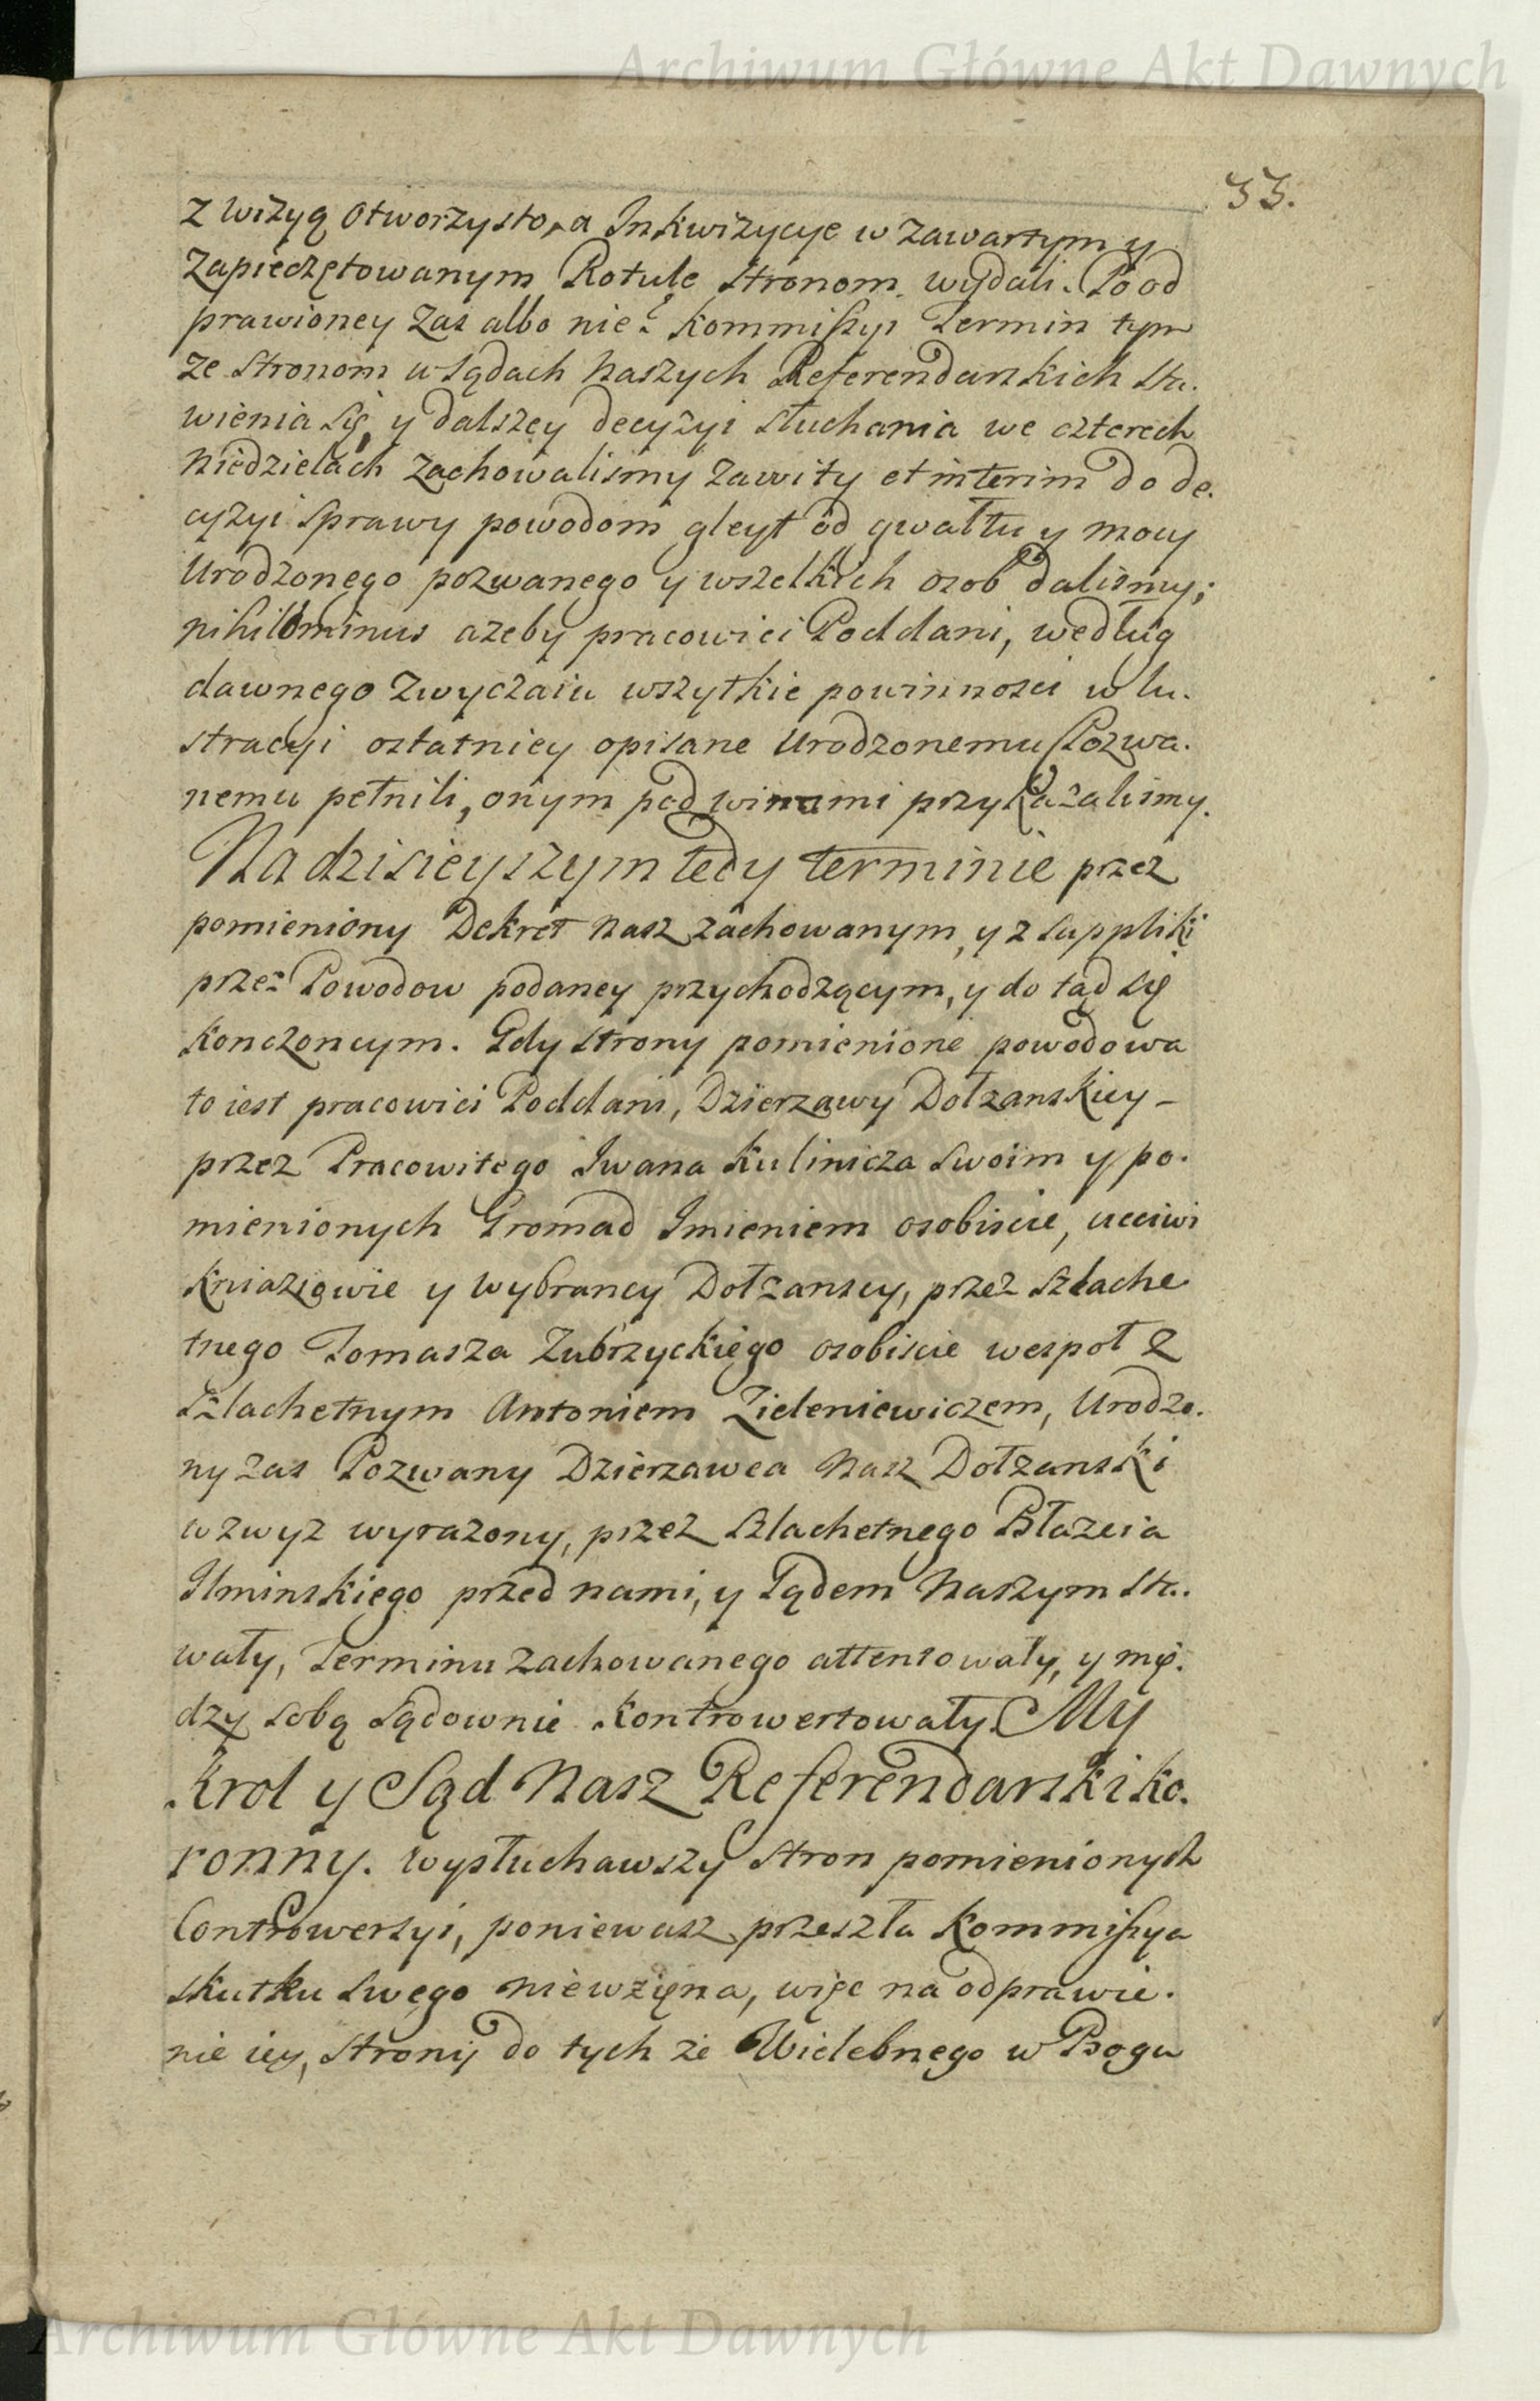 Archiwum Główne Akt Dawnych
33.
z wizyą otworzysto, a Inkwizycye w zawartym y
zapieczętowanym Rotule stronom wydali. Po od
prawioney zas albo nie? kommissyi Termin tym
ze stronom w sądach naszych Referendarskich sta.
wienia się, y dalszey decyzyi słuchania we czterech
niedzielach zachowalismy zawity et interim do de.
cyzyi sprawy powodom gleyt od gwałtu y mocy
Urodzonego pozwanego y wszelkich osob dalismy;
nihilominus azeby pracowici Poddani, według
dawnego zwyczaiu wszytkie powinnosci w lu.
stracyi ostatniey opisane Urodzonemu Pozwa.
nemu pełnili, onym pod winami przykazalismy.
Na dzisieyszym tedy terminie przez
pomieniony Dekret nasz zachowanym, y z suppliki
przez Powodow podaney przychodzącym, y do tąd się
konczoncym. Gdy strony pomienione powodowa
to iest pracowici Poddani, Dzierzawy Dołzanskiey –
przez Pracowitego Iwana Kulinicza swoim y po.
mienionych Gromad Imieniem osobiscie, ucciwi
Kniaziowie y wybrancy Dołzanscy, przez szlache
tnego Tomasza Zubrzyckiego osobiscie wespoł z
szlachetnym Antoniem Zieleniewiczem, Urodzo.
ny zas Pozwany Dzierzawca nasz Dołzanski
wzwyz wyrazony, przez szlachetnego Błazeia
Ilminskiego przed nami, y sądem naszym sta.
wały, Terminu zachowanego attentowały, y mię.
dzy sobą sądownie kontrowertowały. My
Krol y Sąd nasz Referendarski ko.
ronny. wysłuchawszy stron pomienionych
Controwersyi, poniewasz przeszła kommissya
skutku swego niewzięna, więc na odprawie.
nie iey, strony do tych ze Wielebnego w Bogu
Archiwum Główne Akt Dawnych